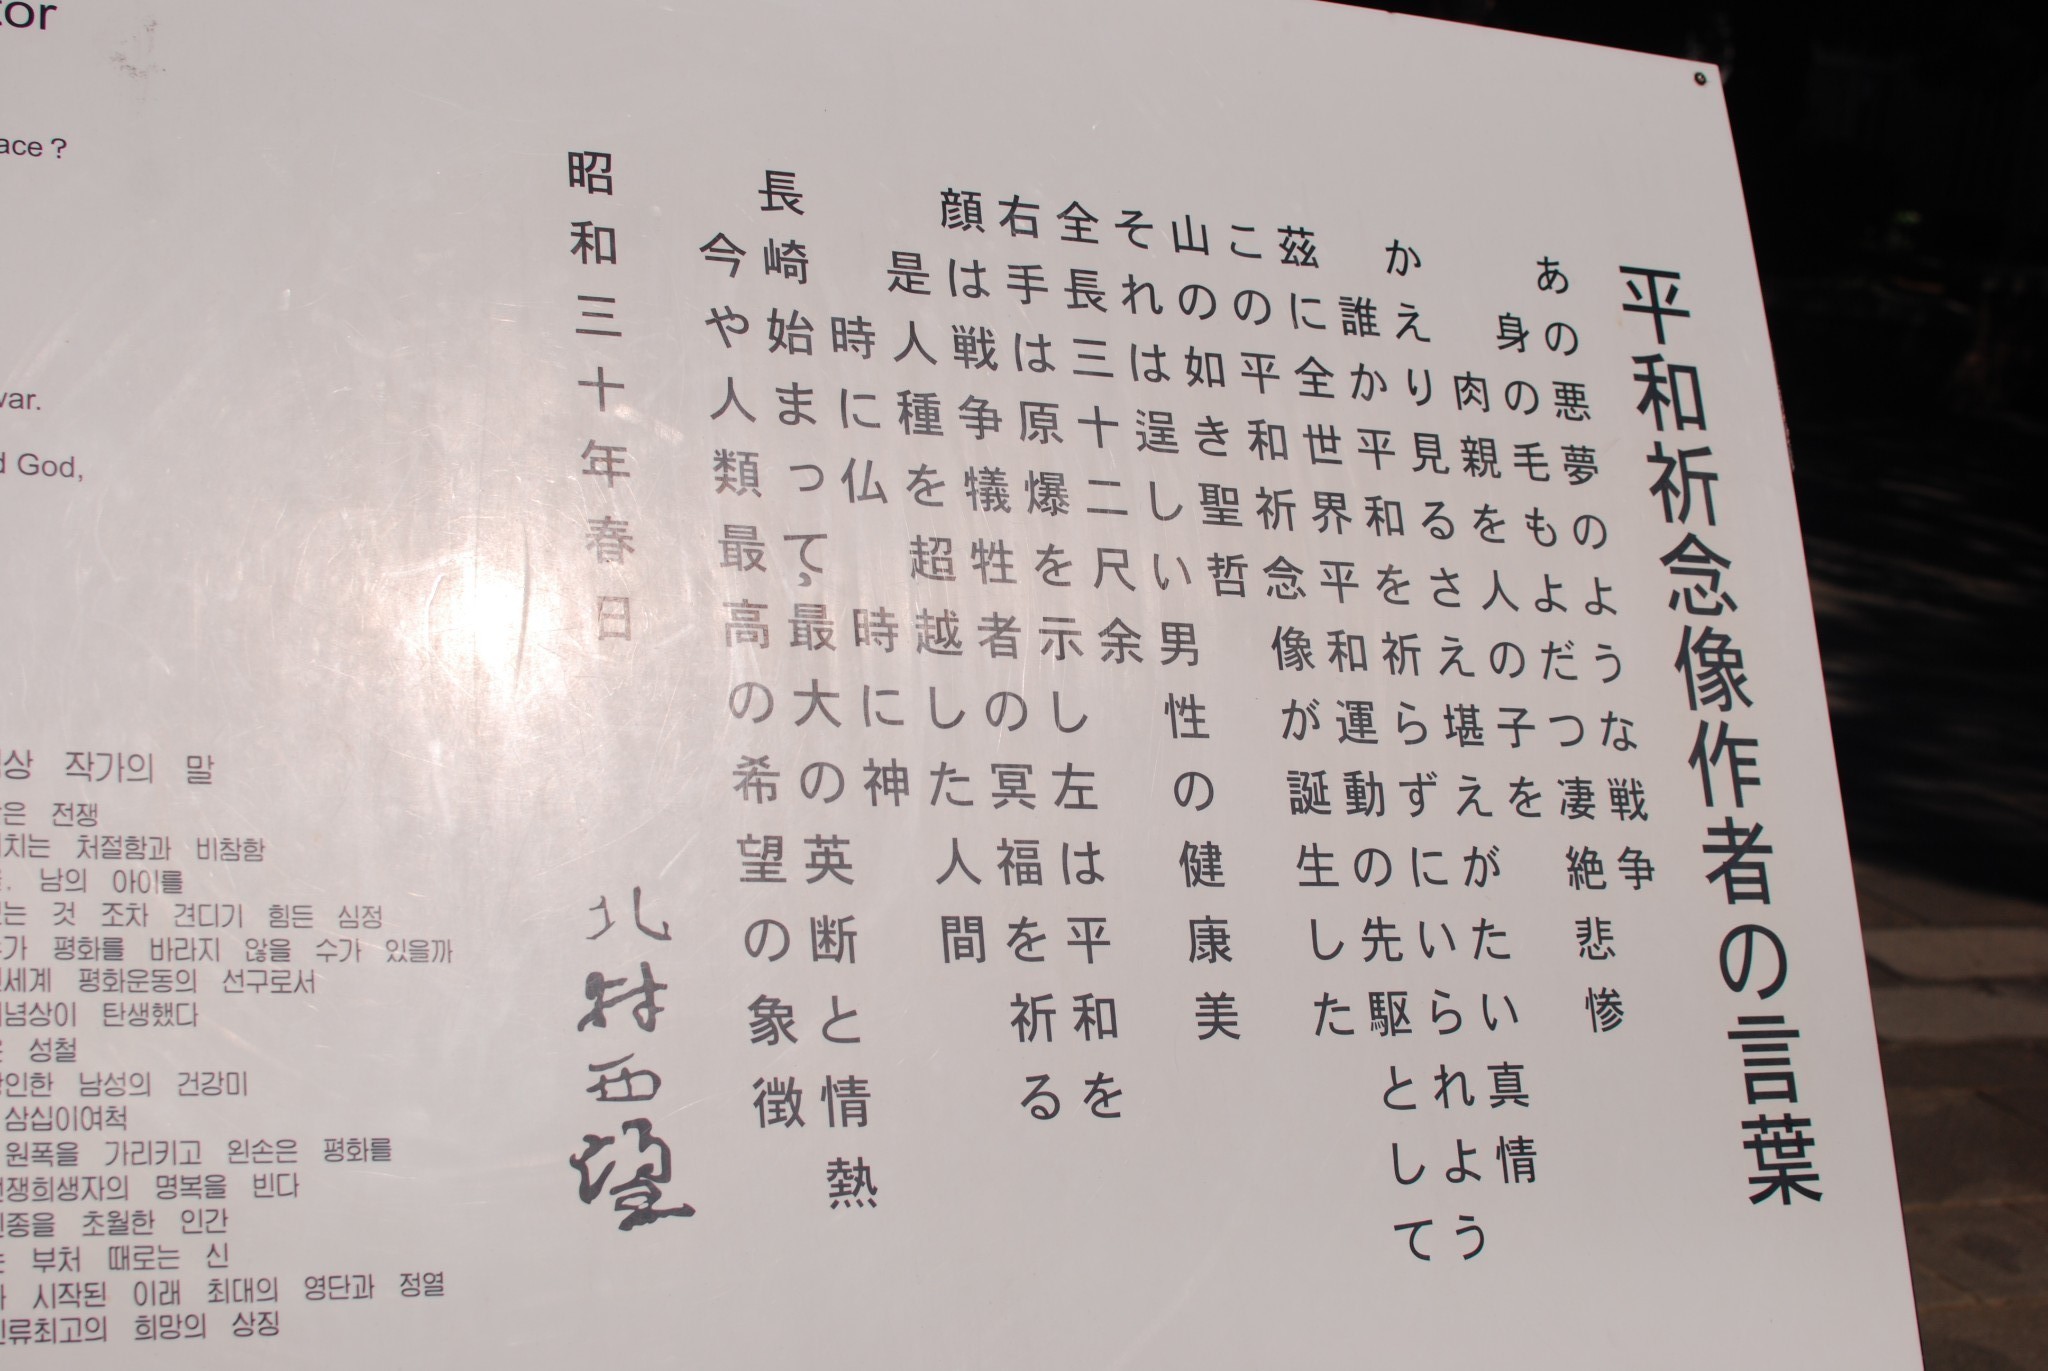 平和祈念像作者の言葉
あの悪夢のような戦争
身の毛もよだつ凄絶悲惨
肉親を人の子を
かえり見るさえ堪えがたい真情
誰か平和を祈らずにいられよう
茲に全世界平和運動の先駆として
この平和祈念像が誕生した
山の如き聖哲
それは逞しい男性の健康美
全長三十二尺余
右手は原爆を示し左は平和を
顔は戦争犠牲者の冥福を祈る
是人種を超越した人間
時に仏 時に神
長崎始まって、最大の英断と情熱
今や人類最高の希望の象徴
昭和三十年春日 北村西望
?
war.
God,
작가의 말
전쟁
처절함과 비참함
남의 아이를
것 조차 견디기 힘든 심정
평화를 바라지 않을 수가 있을까
평화운동의 선구로서
탄생했다
성철
남성의 건강미
삼십이여척
원폭을 가리키고 왼손은 평화를
명복을 빈다
초월한 인간
부처 때로는 신
시작된 이래 최대의 영단과 정열
희망의 상징